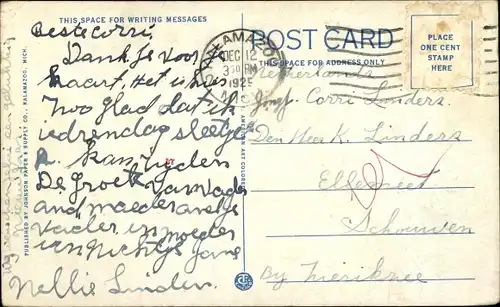 THIS SPACE FOR WRITING MESSAGES
Beste Corri,
Dank Je voor
kaart. Het is hier
zoo glad dat ik
iedren dag sleetje
kan ryden
De groet van vader
and moeder and je
vader in moeder
van nichtje Jane
Nellie Linders.
PUBLISHED BY JOHNSON PAPER & SUPPLY CO., KALAMAZOO, MICH.
AMERICAN ART COLORED
POST CARD
THIS SPACE FOR ADDRESS ONLY
KALAMAZOO
DEC 12
3 30 PM
1925
PLACE
ONE CENT
STAMP
HERE
Netherlands
Jongf. Corri Linders.
Den Heer K. Linders
Ellemeet
Schouwen
By Zierikzee